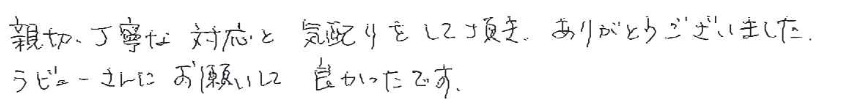 親切、丁寧な対応と 気配りをして頂き、ありがとうございました。
ラビューさんにお願いして 良かったです。